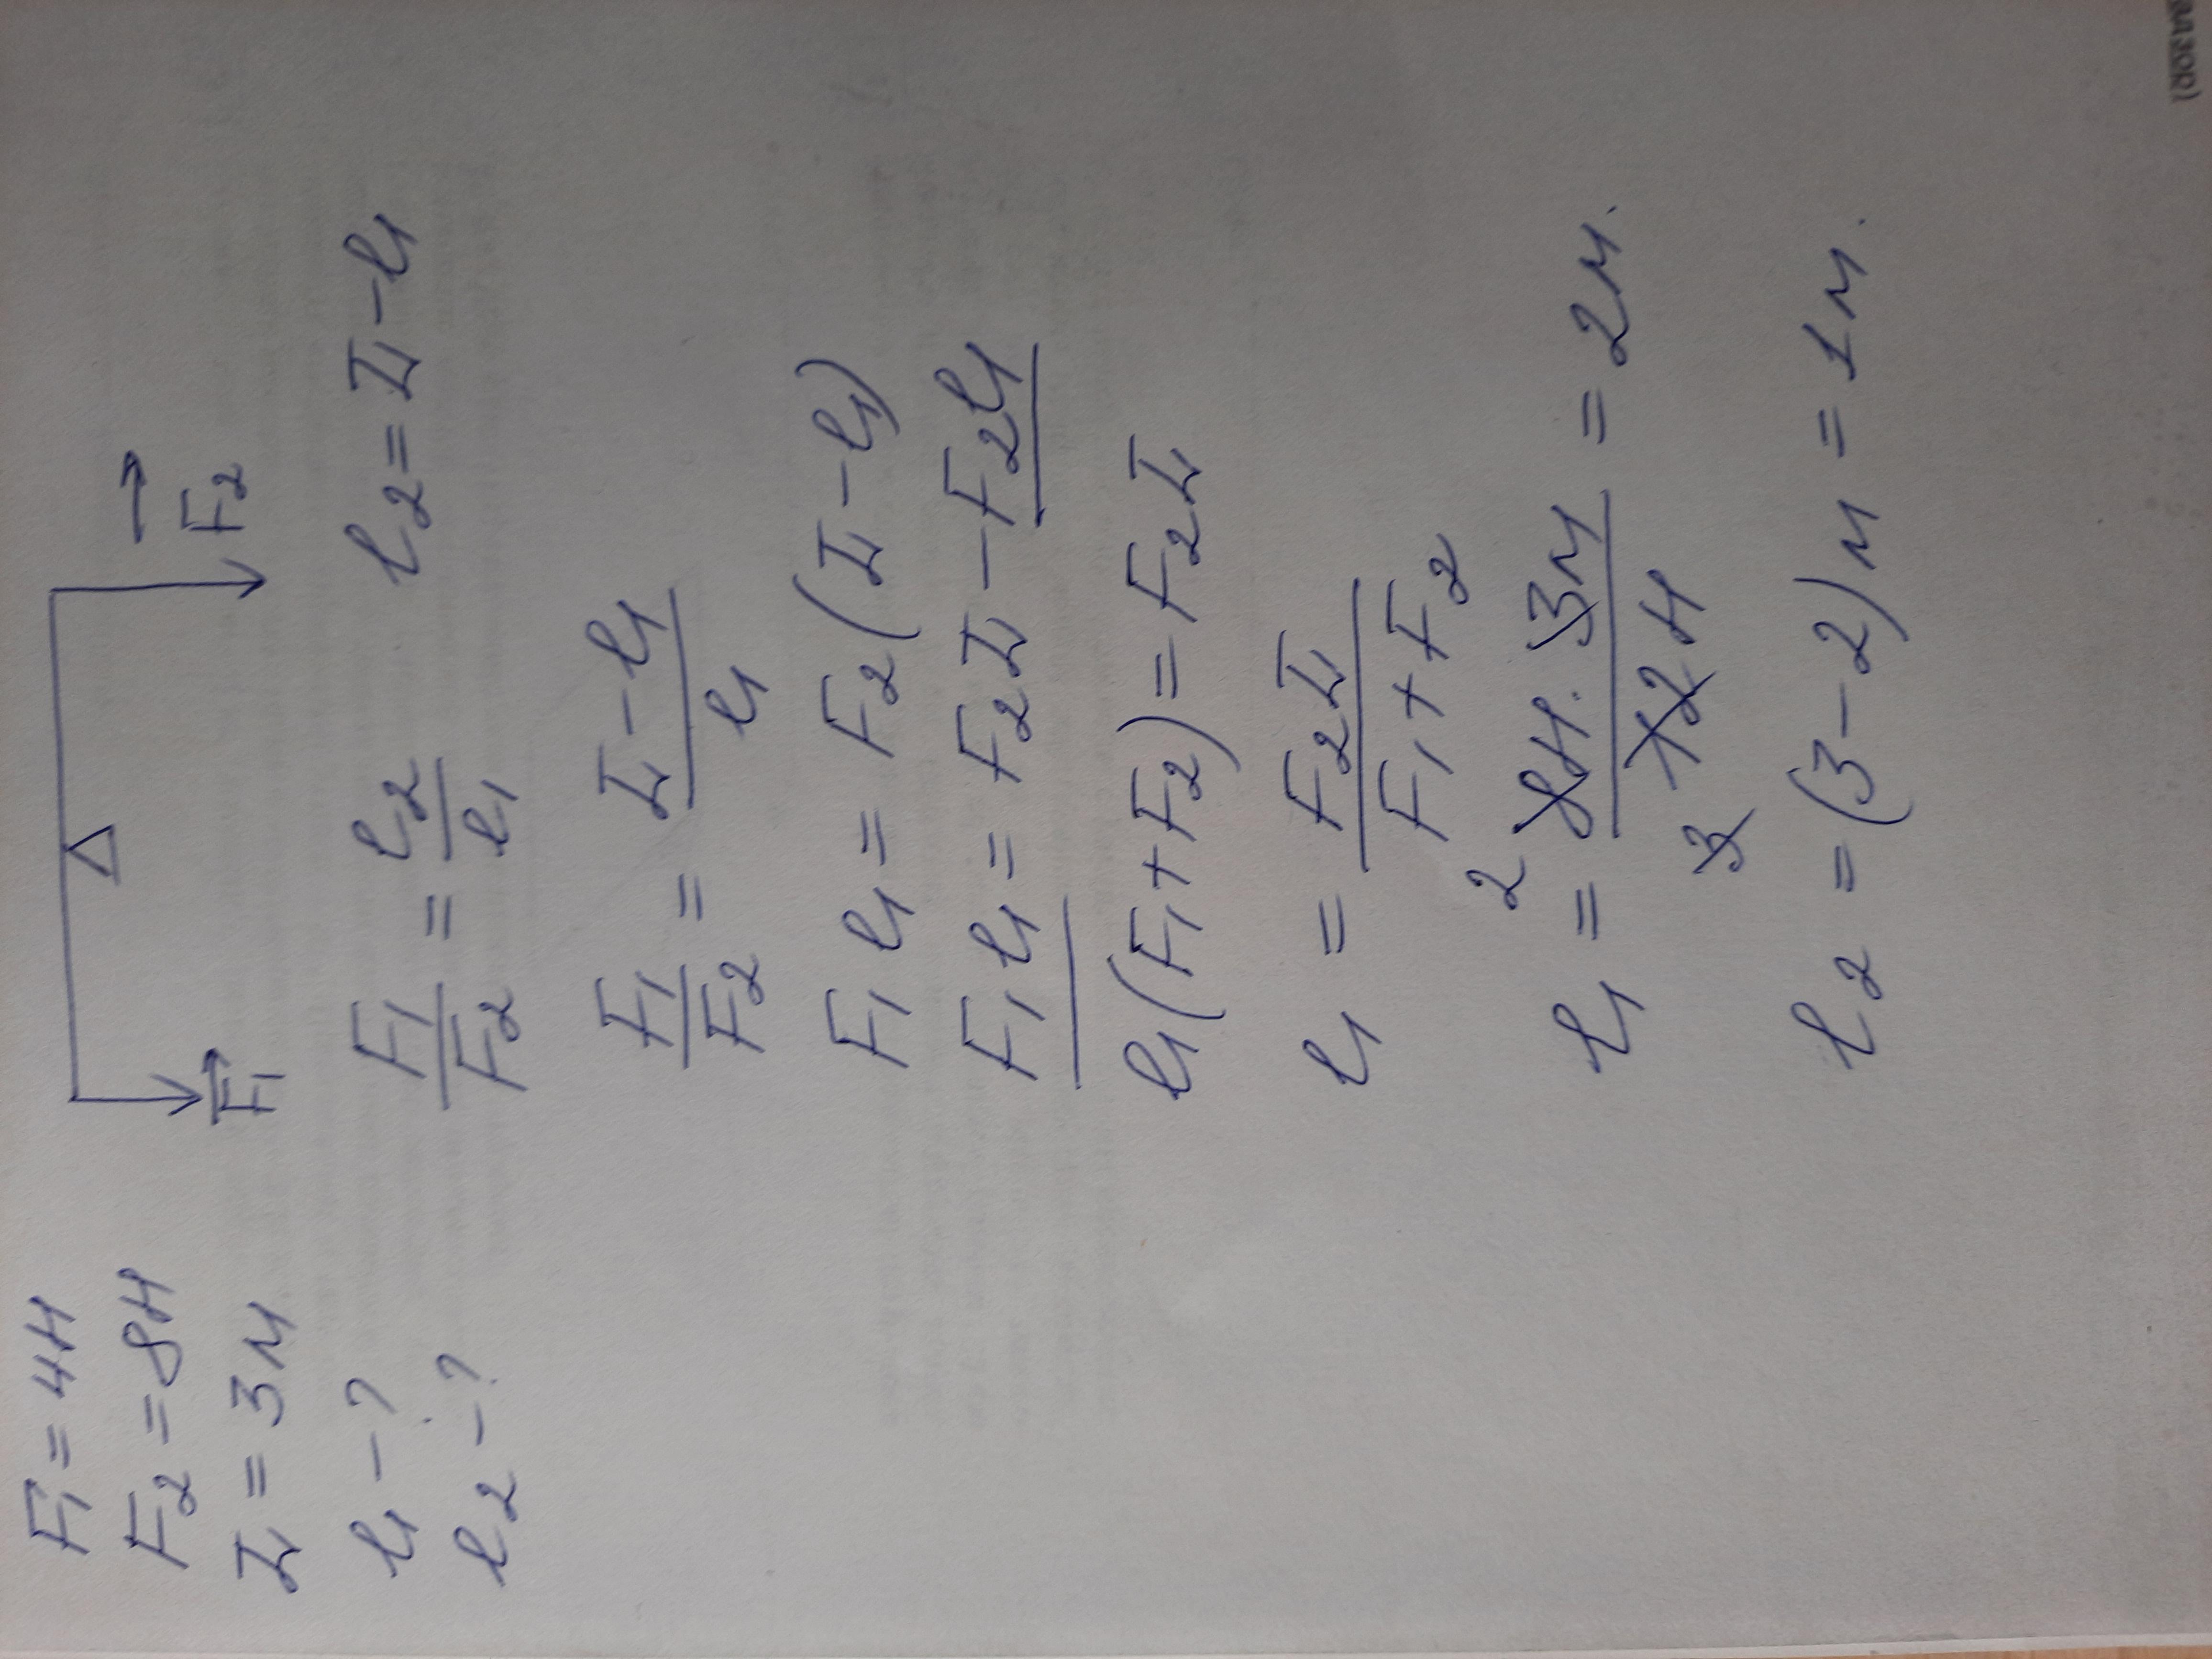 F₁ = 4Н
F₂ = 8Н
L = 3м
l₁ - ?
l₂ - ?
F₁ F₂
F₁/F₂ = l₂/l₁ l₂ = L - l₁
F₁/F₂ = (L - l₁)/l₁
F₁ l₁ = F₂ (L - l₁)
F₁ l₁ = F₂L - F₂l₁
l₁(F₁ + F₂) = F₂L
l₁ = F₂L/(F₁ + F₂)
l₁ = 2 8Н · 3м/12Н 3 = 2м.
l₂ = (3 - 2) м = 1м.